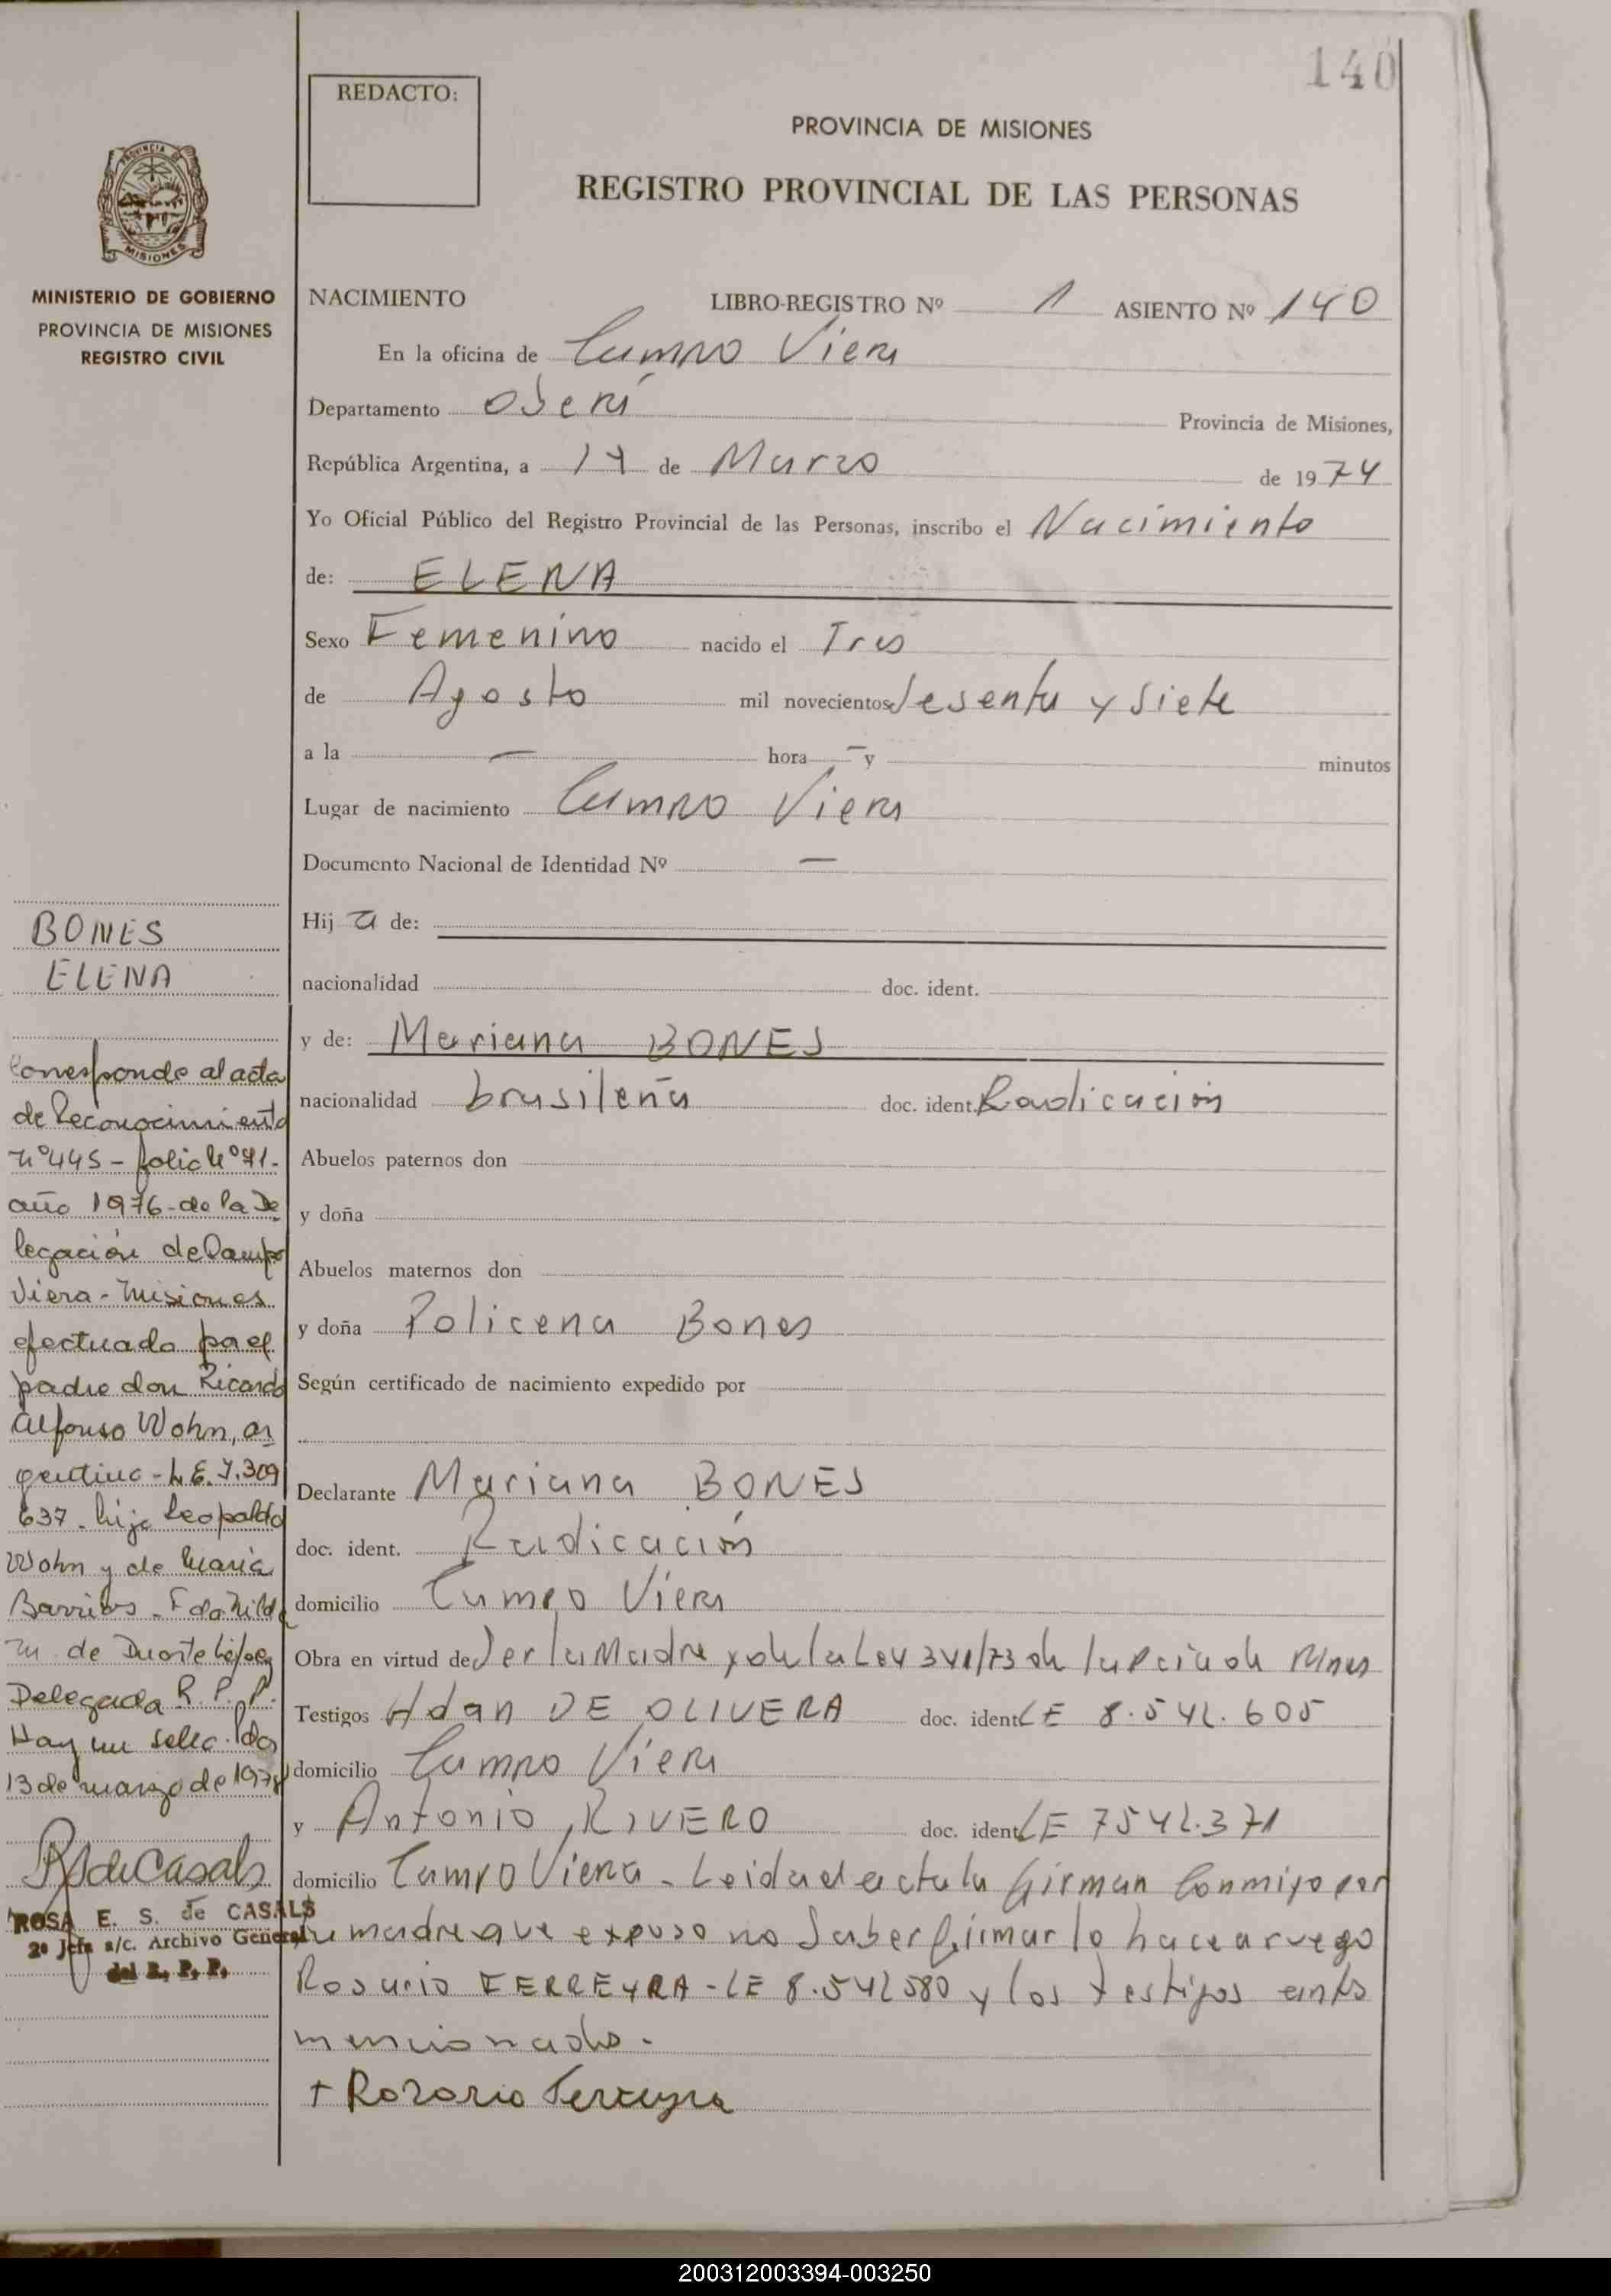 140
REDACTO:
PROVINCIA DE MISIONES
REGISTRO PROVINCIAL DE LAS PERSONAS
PROVINCIA DE
MISIONES
MINISTERIO DE GOBIERNO
PROVINCIA DE MISIONES
REGISTRO CIVIL
NACIMIENTO LIBRO-REGISTRO Nº 1 ASIENTO Nº 140
En la oficina de Campo Viera
Departamento Oberá Provincia de Misiones,
República Argentina, a 14 de Marzo de 1974
Yo Oficial Público del Registro Provincial de las Personas, inscribo el Nacimiento
de: ELENA
Sexo Femenino nacido el Tres
de Agosto mil novecientos sesenta y siete
a la — hora — y minutos
Lugar de nacimiento Campo Viera
Documento Nacional de Identidad Nº —
Hij a de:
nacionalidad doc. ident.
y de: Mariana BONES
nacionalidad brasileña doc. ident. Radicación
Abuelos paternos don
y doña
Abuelos maternos don
y doña Policena Bones
Según certificado de nacimiento expedido por
Declarante Mariana BONES
doc. ident. Radicación
domicilio Campo Viera
Obra en virtud de ser la Madre y de la Ley 341/73 de la Pcia de Mnes
Testigos Adan DE OLIVERA doc. ident LE 8.542.605
domicilio Campo Viera
y Antonio RIVERO doc. ident LE 7542.371
domicilio Campo Viera - Leida el acta la firman conmigo por
la madre que expuso no saber firmar lo hace a ruego
Rosario FERREYRA - LE 8.542580 y los testigos antes
mencionados.
+ Rozario Ferreyra
BONES
ELENA
Corresponde al acta
de Reconocimiento
nº 445 - folio Nº 71-
año 1976 - de la De
legación de Campo
Viera - Misiones
efectuado por el
padre don Ricardo
Alfonso Wohn, ar
gentino - L.E. 7.309
637 - hijo Leopoldo
Wohn y de María
Barrios - Fdo Nilda
M. de Duarte López
Delegada R. P. P.
Hay un sello. Pdas
13 de marzo de 1978
R S de Casals
ROSA E. S. de CASALS
2º Jefa a/c. Archivo General
del R. P. P.
200312003394-003250